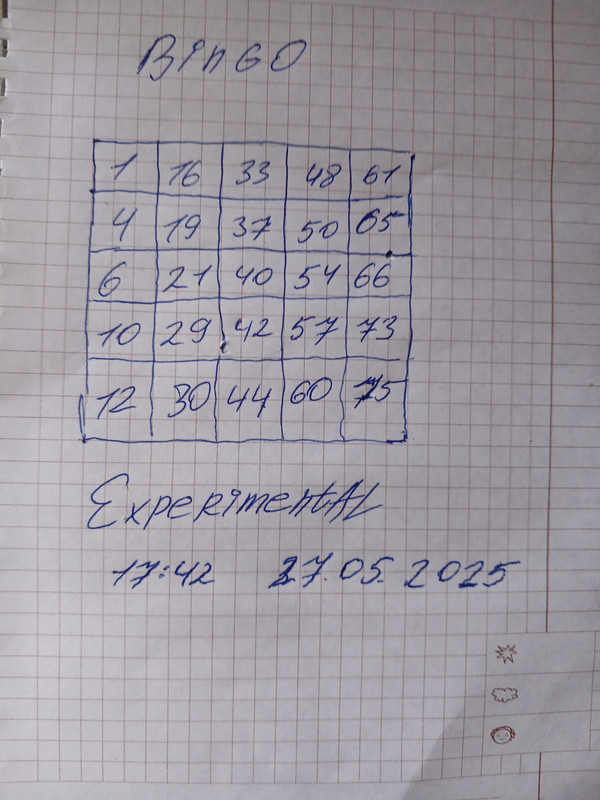 BinGO
1 16 33 48 61
4 19 37 50 65
6 21 40 54 66
10 29 42 57 73
12 30 44 60 75
ExpeRimentAL
17:42 27.05.2025